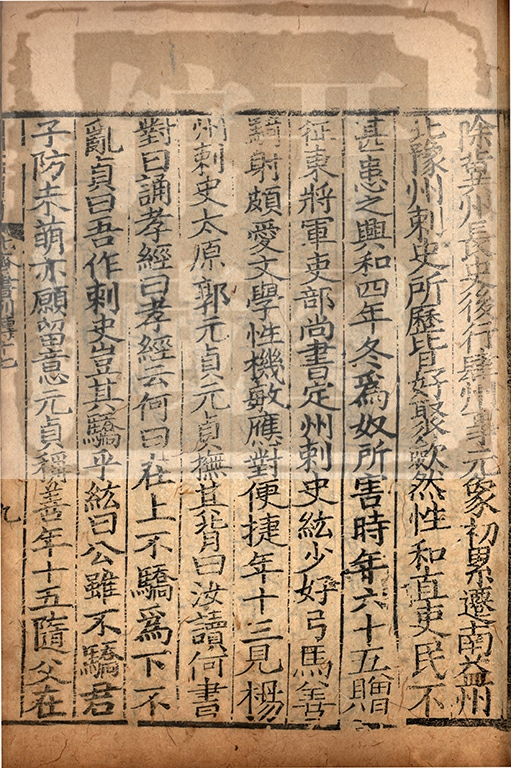 除冀州長史後行肆州事元象初累遷南益州
北豫州刺史所歷皆好聚斂然性和直吏民不
甚患之興和四年冬爲奴所害時年六十五贈
征東將軍吏部尚書定州刺史紘少好弓馬善
騎射頗愛文學性機敏應對便捷年十三見楊
州刺史太原郭元貞元貞撫其背曰汝讀何書
對曰誦孝經曰孝經云何曰在上不驕爲下不
亂貞曰吾作刺史豈其驕乎紘曰公雖不驕君
子防未萌亦願留意元貞稱善年十五隨父在
北齊書列傳十七 九